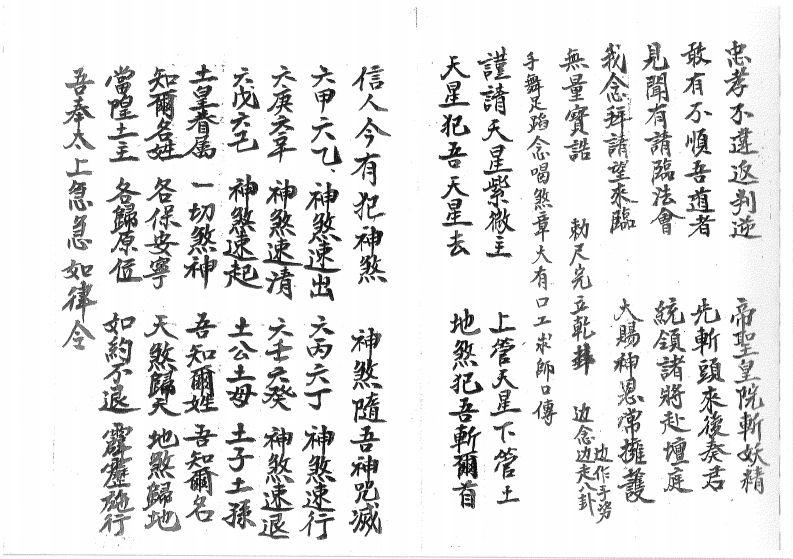 忠孝不遵返判逆　帝聖皇院斬妖精
敢有不順吾道者　先斬頭來後奏君
見聞有請臨法會　統領諸將赴壇庭
我念拜請望來臨　大賜神恩常擁護
無量寶誥　勅尺完立乾　边念边走八卦　边作手势
手舞足蹈念唱煞章大有口工求師口傳
謹請天星紫微主　上管天星下管土
天星犯吾天星去　地煞犯吾斬爾首
信人今有犯神煞　神煞隨吾神咒滅
六甲六乙、神煞速出　六丙六丁　神煞速行
六庚六辛　神煞速清　六壬六癸　神煞速退
六戊六己　神煞速起　土公土母　土子土孫
土皇眷属　一切煞神　吾知爾姓　吾知爾名
知爾名姓　各保安寧　天煞歸天　地煞歸地
當隍土主　各歸原位　如約不退　霹靂施行
吾奉太上急急如律令